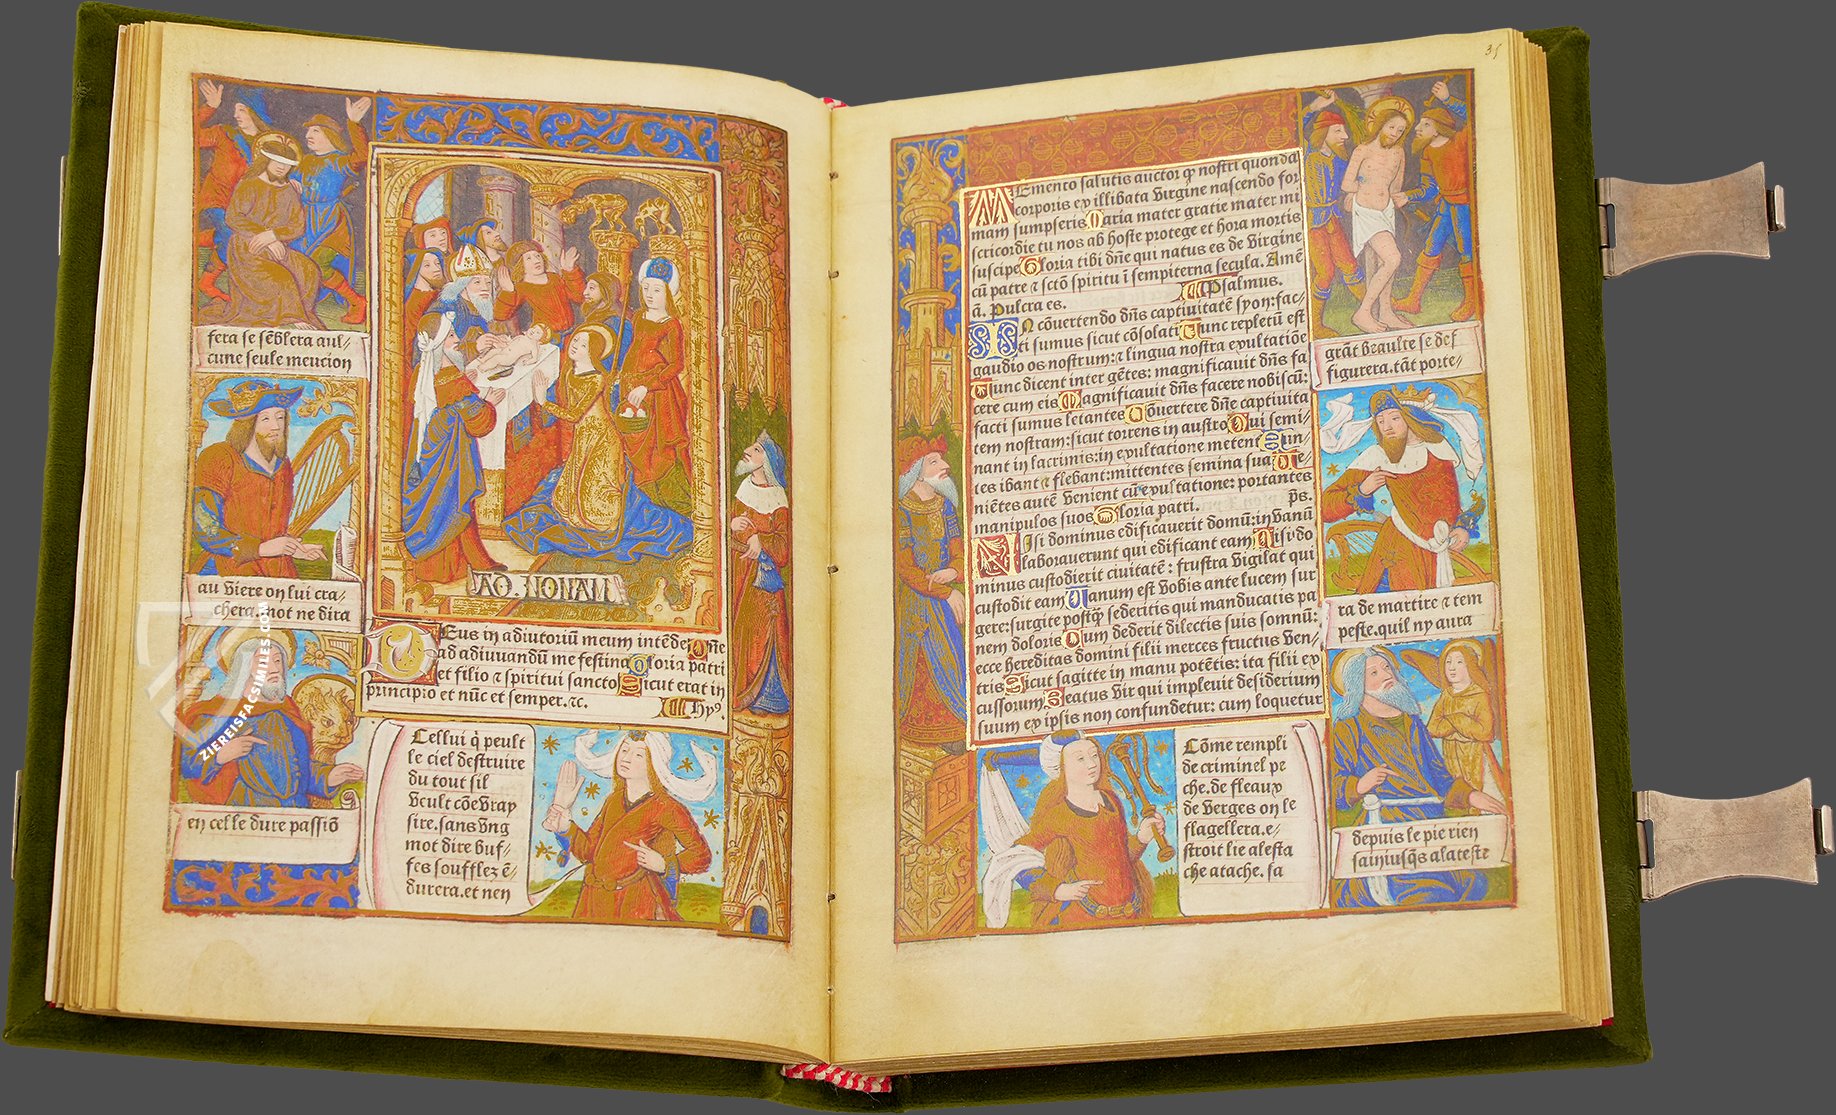 fera se sēblera aul⸗
cune seule mencion
au viere on lui cra⸗
chera. mot ne dira
en celle dure passiō
AD. NONAM
Deus in adiutoriū meum intēde Dñe
ad adiuuandū me festina Gloria patri
et filio ⁊ spiritui sancto Sicut erat in
principio et nūc et semper. ⁊c.
Hyꝰ.
Cellui q̇ peult
le ciel destruire
du tout sil
veult cōe vray
sire. sans vng
mot dire buf⸗
fes soufflez ē⸗
durera. et nen
ZIEREISFACSIMILES.COM
35
Memento salutis auctor ꝙ nostri quondā
corporis ex illibata virgine nascendo for
mam sumpseris Maria mater gratie mater mi
sericordie tu nos ab hoste protege et hora mortis
suscipe Gloria tibi dñe qui natus es de virgine
cū patre ⁊ sctō spiritu ī sempiterna secula. Amē
ā. Pulcra es. Psalmus.
IN cōuertendo dñs captiuitatē syon: fac⸗
ti sumus sicut cōsolati Tunc repletū est
gaudio os nostrum: ⁊ lingua nostra exultatiōe
Tunc dicent inter gētes: magnificauit dñs fa
cere cum eis Magnificauit dñs facere nobiscū:
facti sumus letantes Cōuertere dñe captiuita
tem nostram: sicut torrens in austro Qui semi⸗
nant in lacrimis: in exultatione metent Eun⸗
tes ibant ⁊ flebant: mittentes semina sua Ve⸗
niētes autē venient cū exultatione: portantes
manipulos suos Gloria patri. p̄s.
NIsi dominus edificauerit domū: in vanū
laborauerunt qui edificant eam Nisi do
minus custodierit ciuitatē: frustra vigilat qui
custodit eam Vanum est vobis ante lucem sur
gere: surgite postꝙ sederitis qui manducatis pa
nem doloris Cum dederit dilectis suis somnū:
ecce hereditas domini filii merces fructus ven⸗
tris Sicut sagitte in manu potētis: ita filii ex
cussorum Beatus vir qui impleuit desiderium
suum ex ipsis non confundetur: cum loquetur
grāt beaulte se def
figurera. tāt porte⸗
ra de martire ⁊ tem
peste. quil ny aura
depuis le pie rien
sain iusq̄s a la teste
Cōme rempli
de criminel pe
che. de fleaux
de verges on le
flagellera. e⸗
stroit lie a lesta
che atache. sa